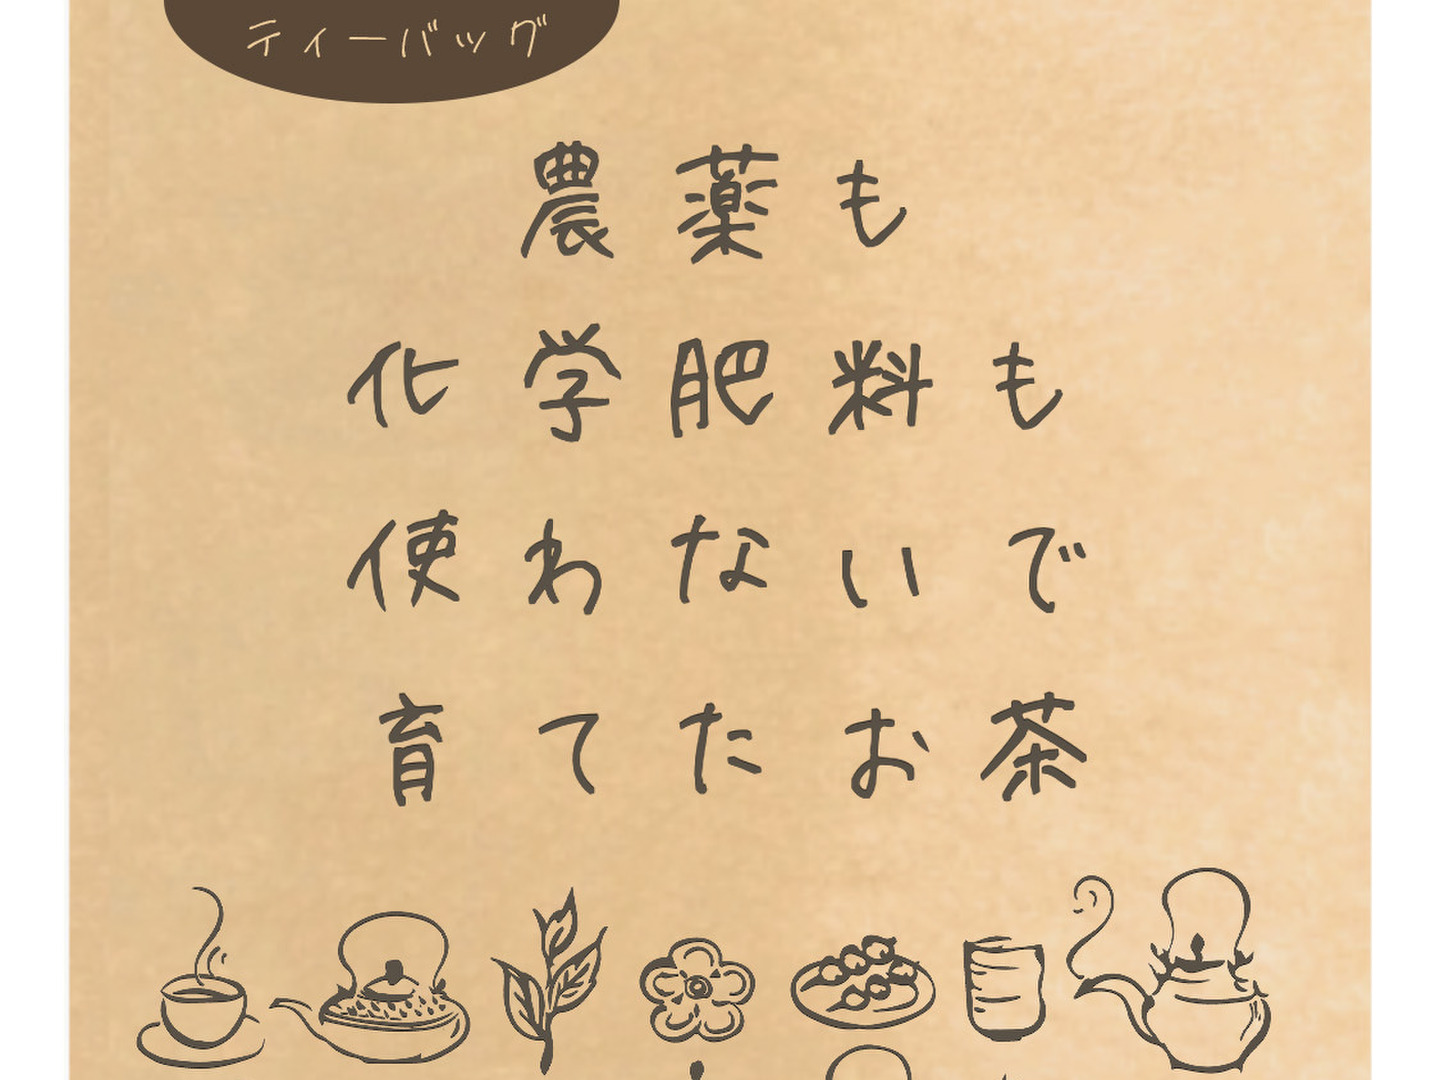 ティーバッグ
農薬も
化学肥料も
使わないで
育てたお茶